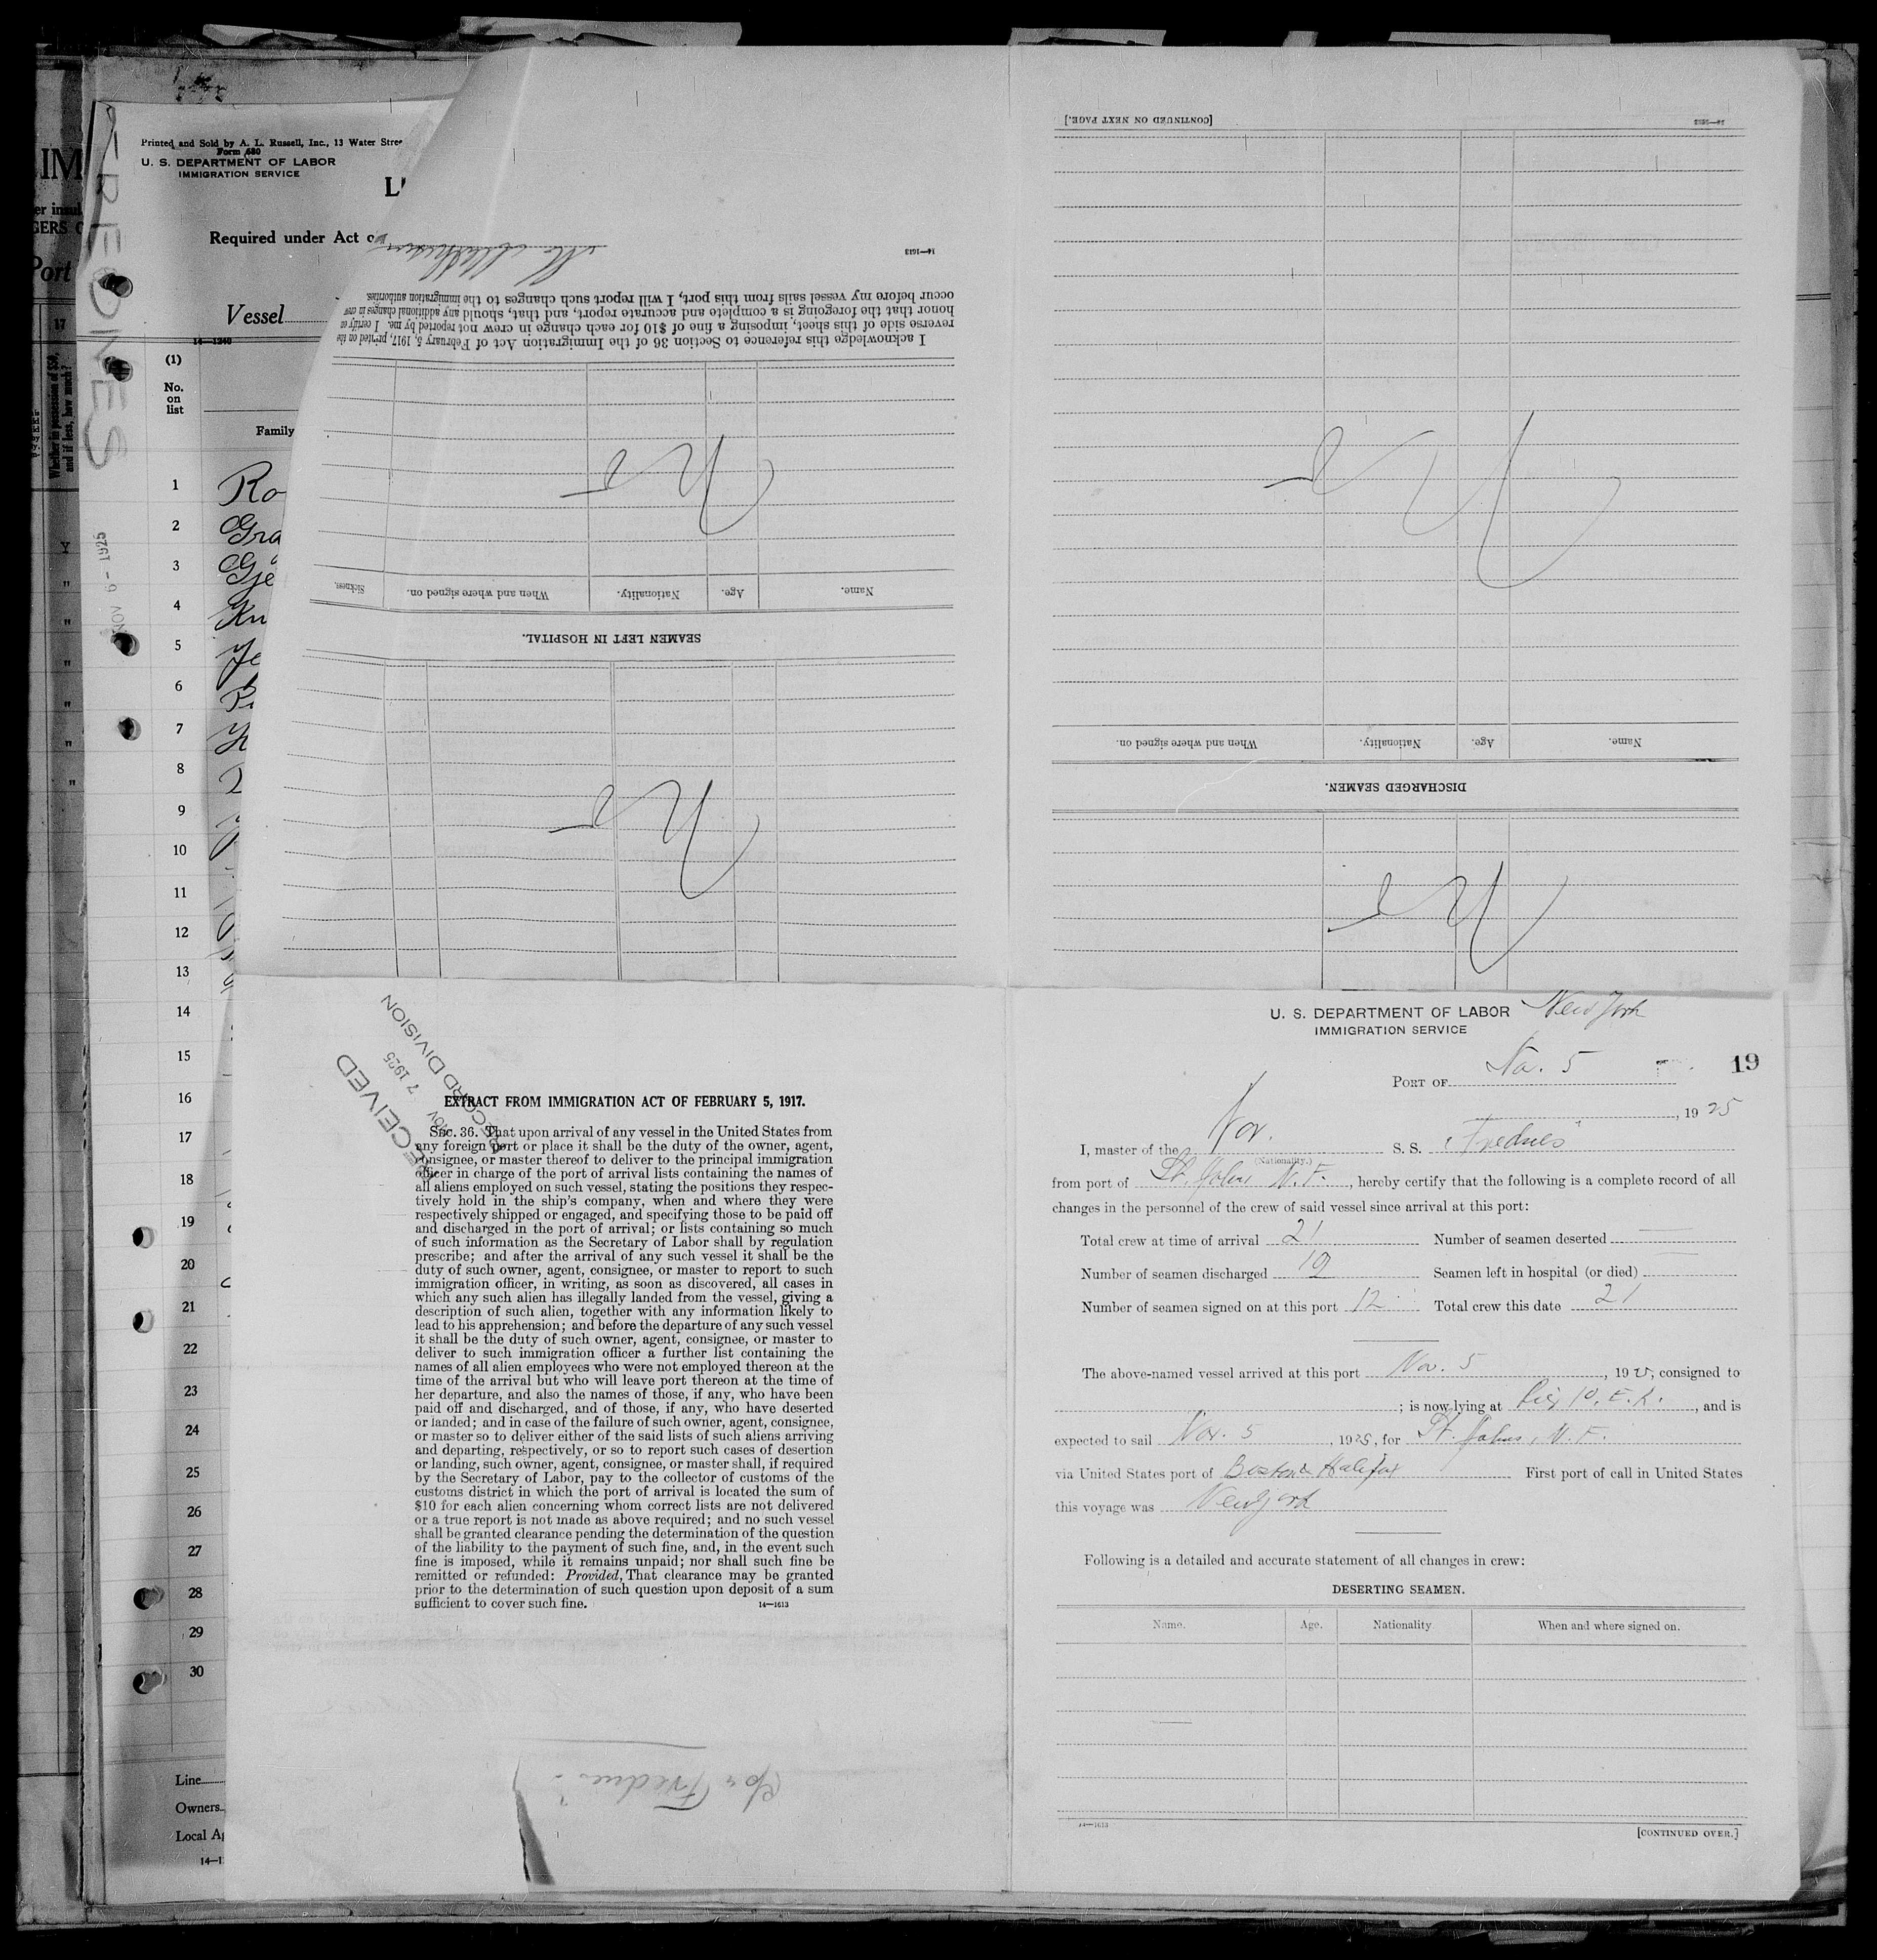 Printed and Sold by A. L. Russell, Inc., 13 Water Stree
Form 680
U. S. DEPARTMENT OF LABOR
IMMIGRATION SERVICE
Required under Act o
Vessel
14—1240
(1)
No.
on
list
Family
1 Ro
2 Gra
3 Gje
4 Kn
5
6
7
8
9
10
11
12
13
14
15
16
17
18
19
20
21
22
23
24
25
26
27
28
29
30
Line
Owners
Local A
14—1
FREDNES
NOV 6 - 1925
IM
er insul
GERS O
Port
17
Whether in possession of $50,
and if less, how much?
14—1613
I acknowledge this reference to Section 36 of the Immigration Act of February 5, 1917, printed on the
reverse side of this sheet, imposing a fine of $10 for each change in crew not reported by me. I certify on
honor that the foregoing is a complete and accurate report, and that, should any additional changes in crew
occur before my vessel sails from this port, I will report such changes to the immigration authorities.
SEAMEN LEFT IN HOSPITAL.
Name. Age. Nationality. When and where signed on. Sickness.
[CONTINUED ON NEXT PAGE.]
DISCHARGED SEAMEN.
Name. Age. Nationality. When and where signed on.
RECEIVED
NOV 7 1925
RECORD DIVISION
EXTRACT FROM IMMIGRATION ACT OF FEBRUARY 5, 1917.
Sec. 36. That upon arrival of any vessel in the United States from
any foreign port or place it shall be the duty of the owner, agent,
consignee, or master thereof to deliver to the principal immigration
officer in charge of the port of arrival lists containing the names of
all aliens employed on such vessel, stating the positions they respec-
tively hold in the ship's company, when and where they were
respectively shipped or engaged, and specifying those to be paid off
and discharged in the port of arrival; or lists containing so much
of such information as the Secretary of Labor shall by regulation
prescribe; and after the arrival of any such vessel it shall be the
duty of such owner, agent, consignee, or master to report to such
immigration officer, in writing, as soon as discovered, all cases in
which any such alien has illegally landed from the vessel, giving a
description of such alien, together with any information likely to
lead to his apprehension; and before the departure of any such vessel
it shall be the duty of such owner, agent, consignee, or master to
deliver to such immigration officer a further list containing the
names of all alien employees who were not employed thereon at the
time of the arrival but who will leave port thereon at the time of
her departure, and also the names of those, if any, who have been
paid off and discharged, and of those, if any, who have deserted
or landed; and in case of the failure of such owner, agent, consignee,
or master so to deliver either of the said lists of such aliens arriving
and departing, respectively, or so to report such cases of desertion
or landing, such owner, agent, consignee, or master shall, if required
by the Secretary of Labor, pay to the collector of customs of the
customs district in which the port of arrival is located the sum of
$10 for each alien concerning whom correct lists are not delivered
or a true report is not made as above required; and no such vessel
shall be granted clearance pending the determination of the question
of the liability to the payment of such fine, and, in the event such
fine is imposed, while it remains unpaid; nor shall such fine be
remitted or refunded: Provided, That clearance may be granted
prior to the determination of such question upon deposit of a sum
sufficient to cover such fine.
14—1613
U. S. DEPARTMENT OF LABOR
IMMIGRATION SERVICE
New York
19
PORT OF No. 5
, 1925
I, master of the Nor. S. S. "Frednes"
(Nationality.)
from port of St. Johns N. F., hereby certify that the following is a complete record of all
changes in the personnel of the crew of said vessel since arrival at this port:
Total crew at time of arrival 21 Number of seamen deserted —
Number of seamen discharged 12 Seamen left in hospital (or died) —
Number of seamen signed on at this port 12 Total crew this date 21
The above-named vessel arrived at this port Nov. 5, 1925, consigned to
; is now lying at Pier 10. E. R., and is
expected to sail Nov. 5, 1925, for St. Johns, N. F.
via United States port of Boston & Halifax First port of call in United States
this voyage was New York
Following is a detailed and accurate statement of all changes in crew:
DESERTING SEAMEN.
Name. Age. Nationality When and where signed on.
14—1613
[CONTINUED OVER.]